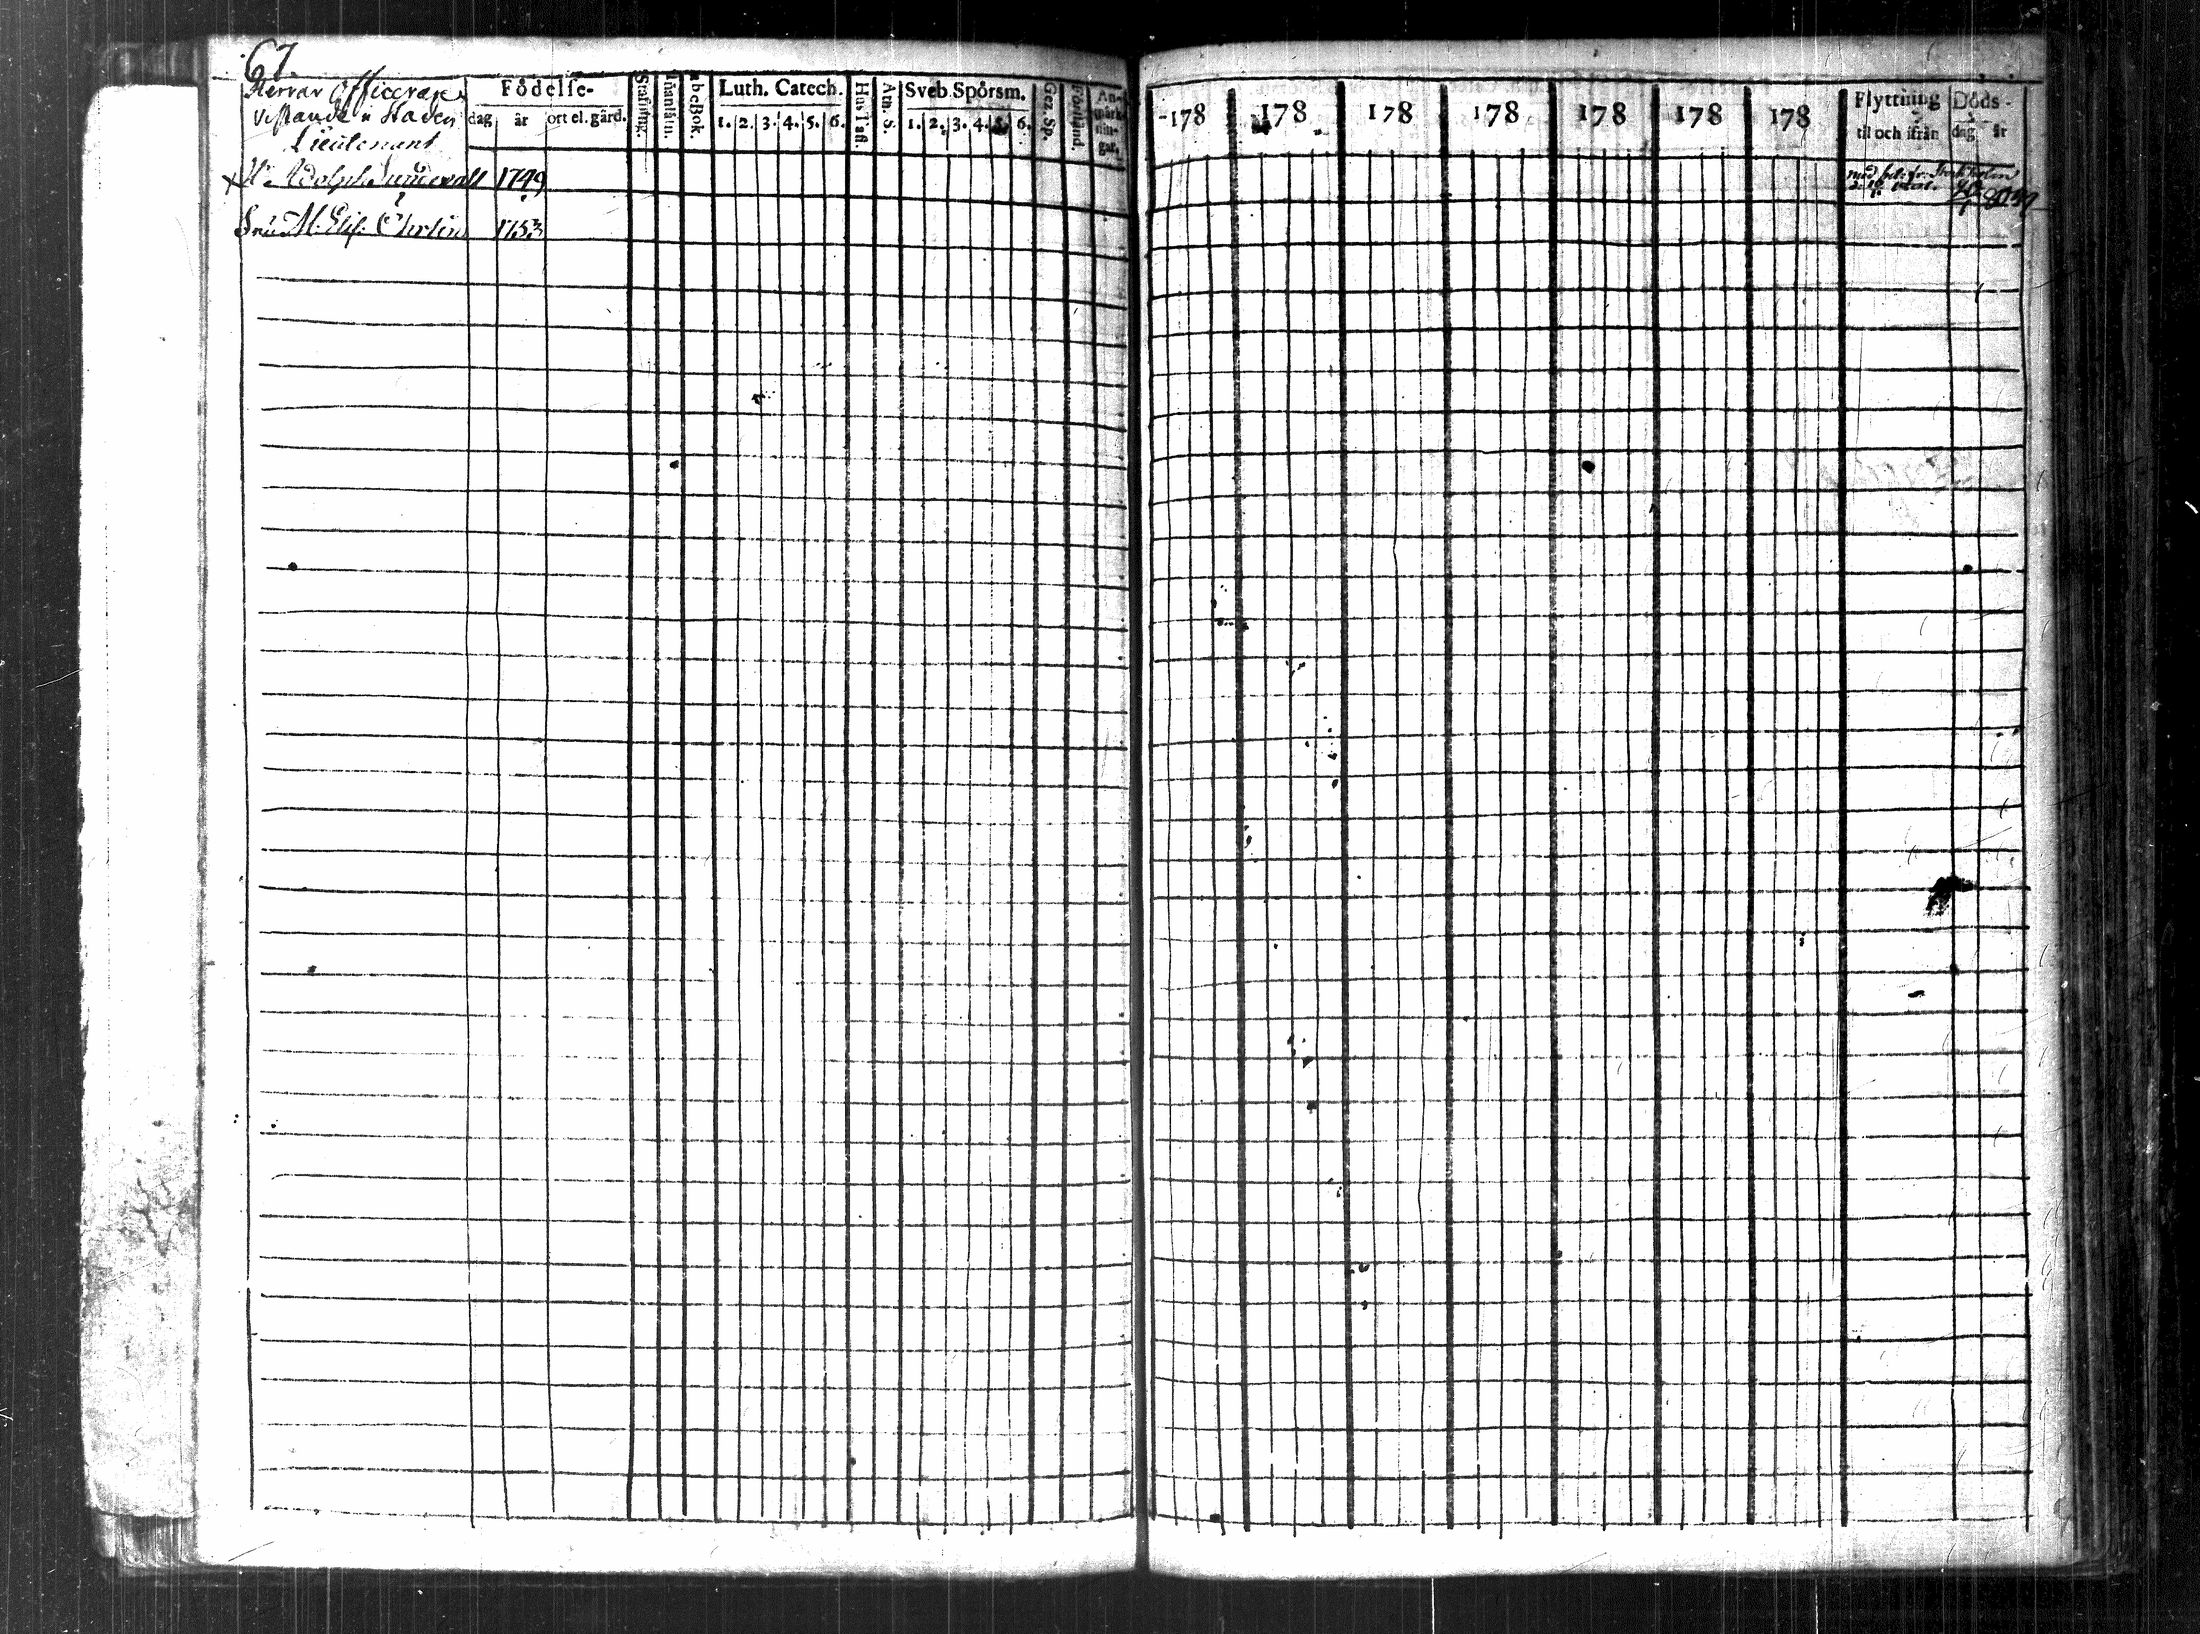 67.
Herrar Officerare
vistande i Staden
Lieutenant
Födelse-
dag år ort el. gård.
Stafning.
Innanlätn.
AbcBok.
Luth. Catech.
1. 2. 3. 4. 5. 6.
Hus Tafl.
Ath. S.
Sveb. Spörsm.
1. 2. 3. 4. 5. 6.
Gez. Sp.
Förstånd.
An-
märk-
nin-
gar.
178 178 178 178 178 178 178
Flyttning
til och ifrån
Döds-
dag år
H. Adolph Sundevall 1749
med Stockholm
Fru M. Elis. 1753